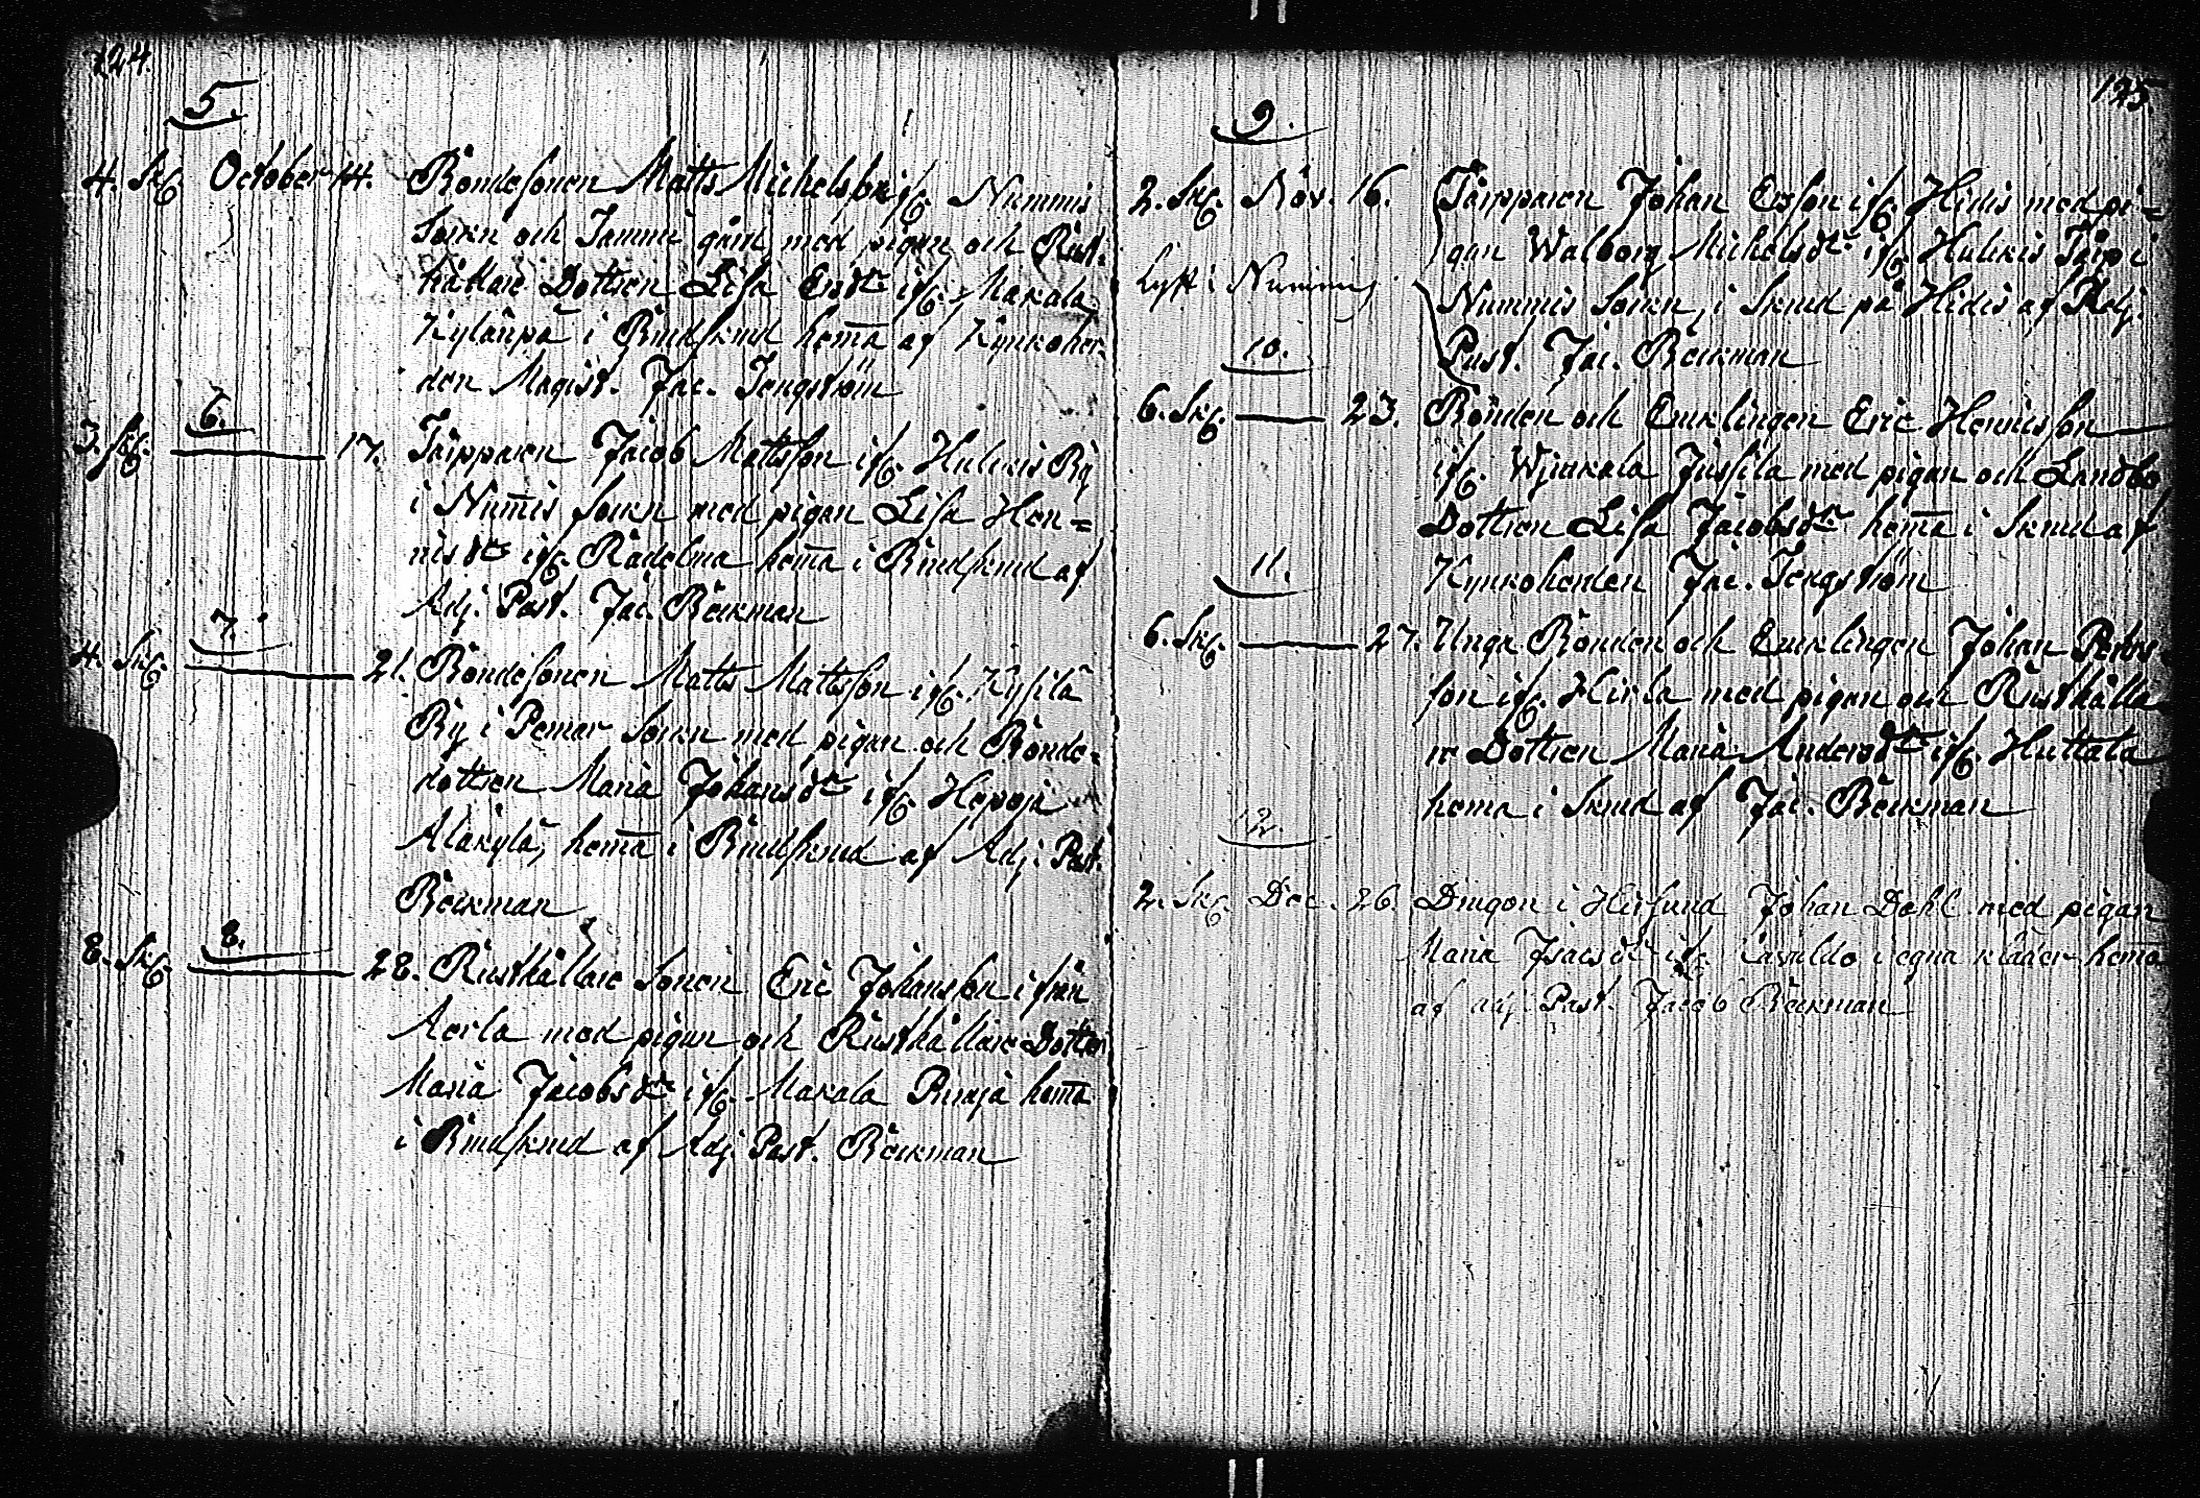 124.
5.
4. Sk. October 14. Bondesonen Matts Michelsson ifr. Nummis
Sokn och Tammi gård med pigan och Rust-
hållare Dottren Lisa Ersdr ifr. Makala
Kylänpä i Brudskrud hema af Kyrkoher-
den Magist. Jac. Tengström
6.
3. Sk. 17. Torpparen Jacob Mattsson ifr. Hulikis By
i Num̅is sokn med pigan Lisa Hen=
risdr ifr. Radelma hem̅a i Brudskrud af
Adj. Past. Jac. Böckman
7.
4. Sk. 21. Bondesonen Matts Mattsson ifr. Kysilä
By i Pemar Sokn med pigan och Bonde-
dottren Maria Johansdr ifr. Hepojo
Alakylä, hem̅a i Brudskrud af Adj. Past.
Böckman
8.
8. Sk. 28. Rusthållare Sonen Eric Johansson ifrån
Aerla med pigan och Rusthållare Dotter
Maria Jacobsdr ifr. Makala hem̅a
i Brudskrud af Adj. Past. Böckman
125
9.
2. Sk. Nov. 16. Torpparen Johan Ersson ifr. Hidis med pi=
gan Walborg Michelsdr ifr. Hulikis Torp i
Lyst i Nummis
Nummis Sokn, i Skrud på Hidis af Adj.
Past. Jac. Böckman
10.
6. Sk. 23. Bonden och Enklingen Eric Henricsson
ifr. Jussila med pigan och Landbo
Dottren Lisa Jacobsdr hem̅a i Skrud af
Kyrkoherden Jac. Tengström
11.
6. Sk. 27. Unga Bonden och Enklingen Johan Perts-
son ifr. Hirla med pigan och Rusthålla-
re Dottren Maria Andersdr ifr. Huttala
hema i Skrud af Jac. Böckman
12.
2. Sk. Dec. 26. Dragon i Johan Dahl med pigan
Maria Isacsdr ifr. i egna kläder hema
af adj. Past. Jacob Böckman